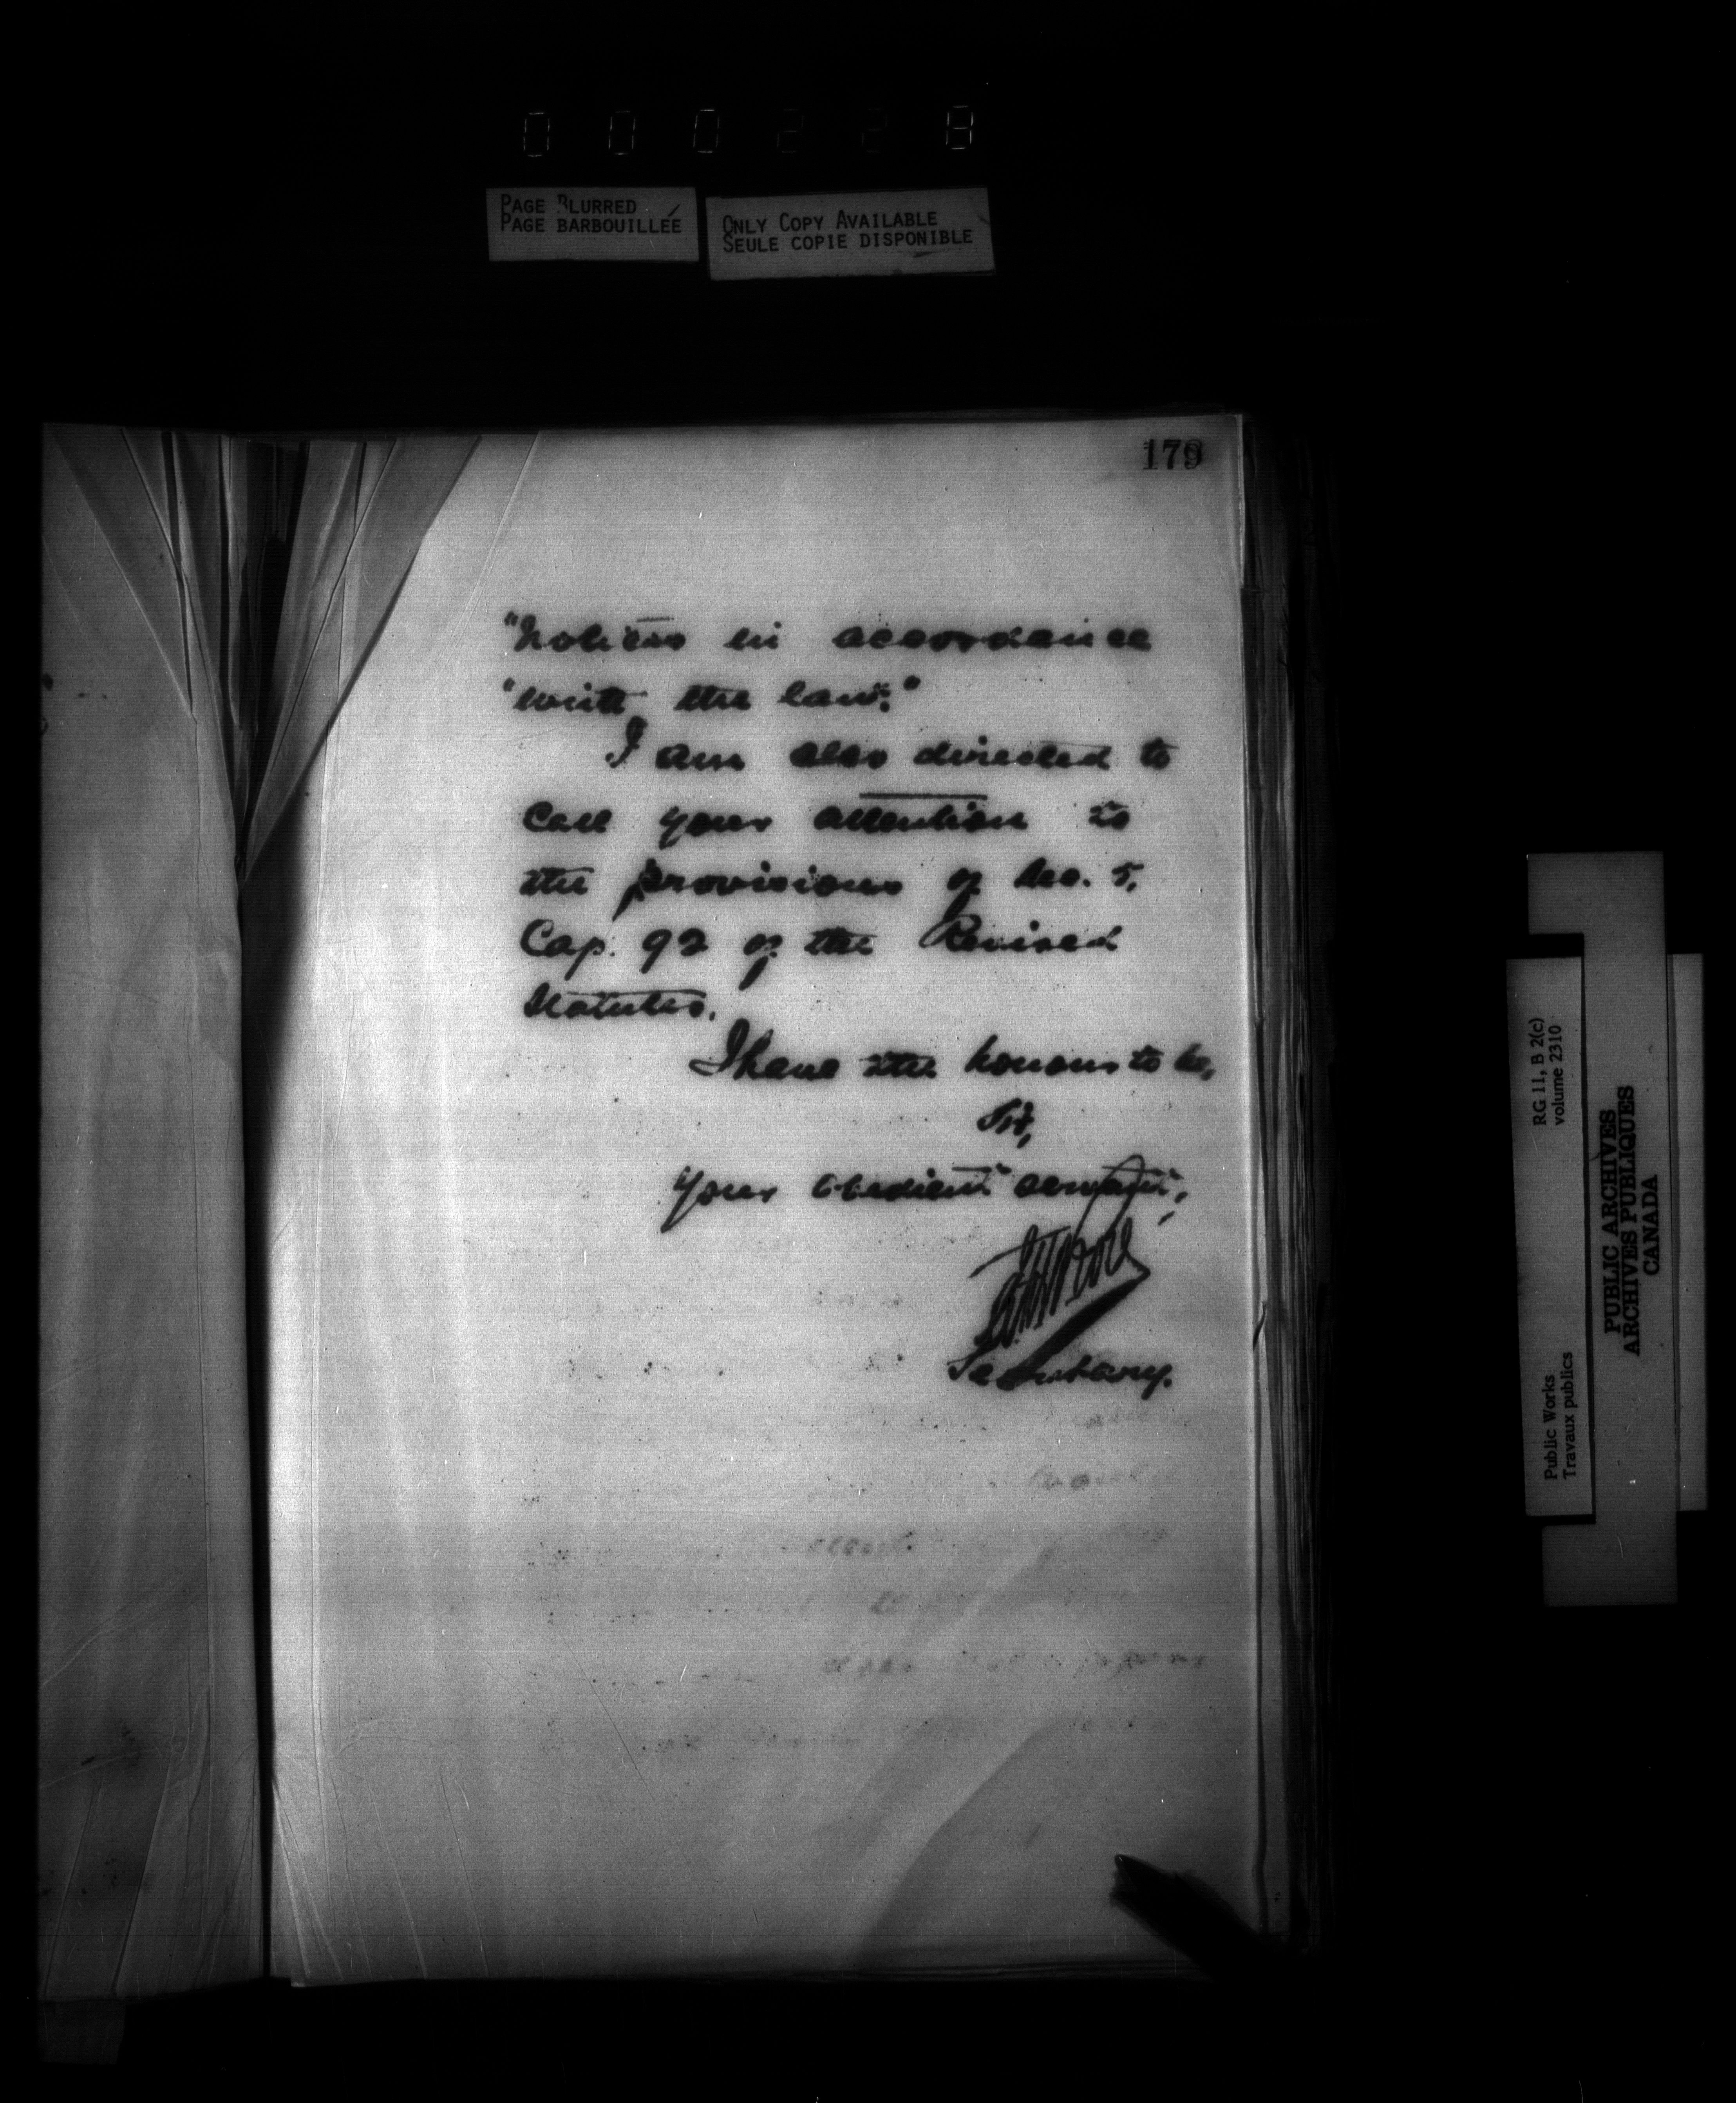 000228
PAGE BLURRED
PAGE BARBOUILLÉE
ONLY COPY AVAILABLE
SEULE COPIE DISPONIBLE
179
"Notices in accordance
"with the law."
I am also directed to
Call your attention to
the provisions of Sec. 5,
Cap. 92 of the Revised
Statutes.
I have the honour to be,
Sir,
Your obedient servant,
Secretary.
RG 11, B 2(c)
volume 2310
Public Works
Travaux publics
PUBLIC ARCHIVES
ARCHIVES PUBLIQUES
CANADA